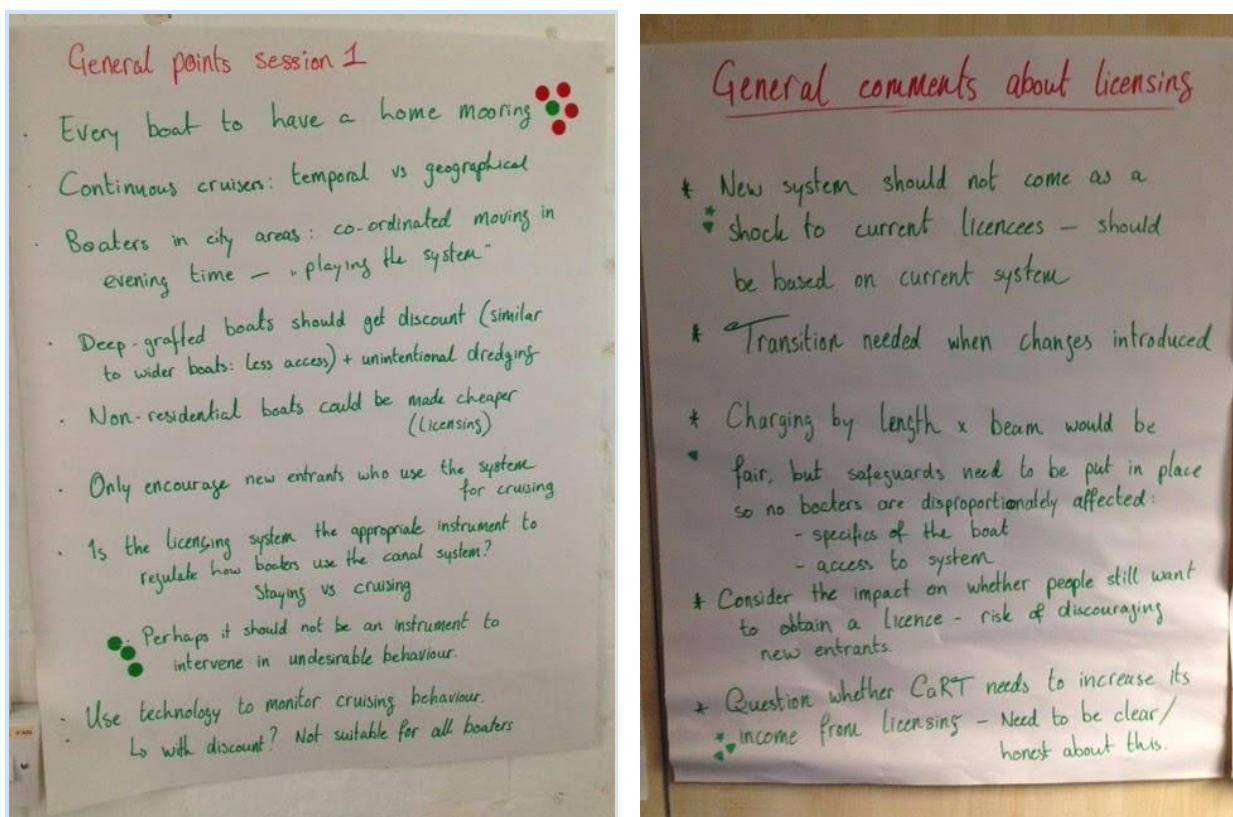 General points session 1
· Every boat to have a home mooring
· Continuous cruisers: temporal vs geographical
· Boaters in city areas: co-ordinated moving in
evening time – "playing the system"
· Deep-grafted boats should get discount (similar
to wider boats: less access) + unintentional dredging
· Non-residential boats could be made cheaper
(Licensing)
· Only encourage new entrants who use the system
for cruising
· Is the licensing system the appropriate instrument to
regulate how boaters use the canal system?
Staying vs cruising
· Perhaps it should not be an instrument to
intervene in undesirable behaviour.
· Use technology to monitor cruising behaviour.
↳ with discount? Not suitable for all boaters
General comments about licensing
* New system should not come as a
shock to current licencees – should
be based on current system
* Transition needed when changes introduced
* Charging by length x beam would be
fair, but safeguards need to be put in place
so no boaters are disproportionately affected:
- specifics of the boat
- access to system
* Consider the impact on whether people still want
to obtain a licence - risk of discouraging
new entrants.
* Question whether CaRT needs to increase its
income from licensing – Need to be clear/
honest about this.